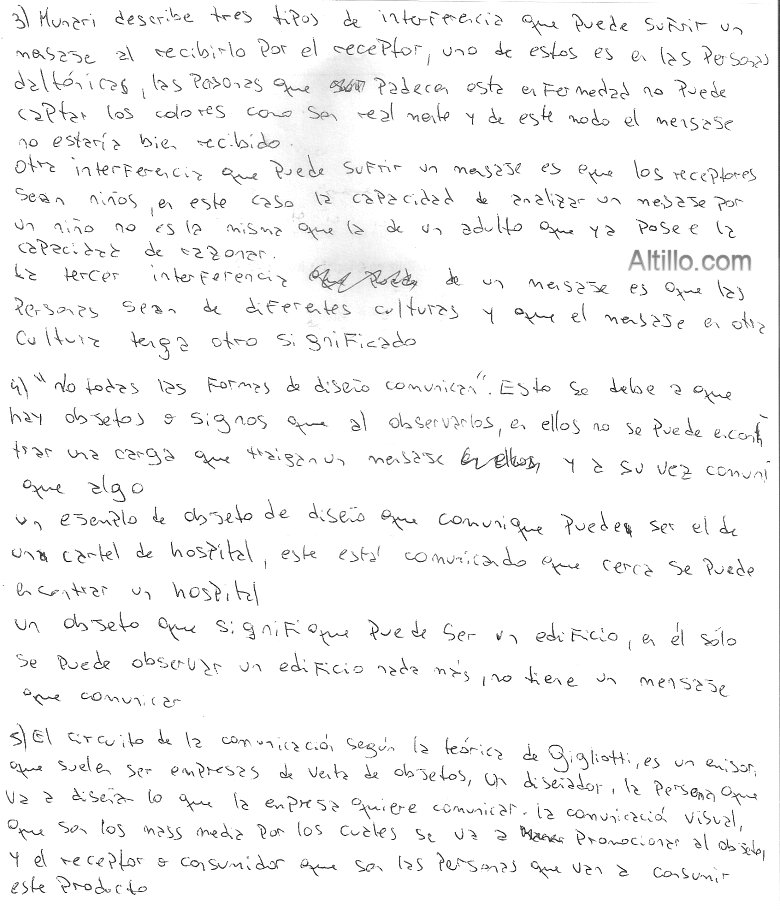 3) Munari describe tres tipos de interferencia que puede sufrir un
mensaje al recibirlo por el receptor, uno de estos es en las personas
daltónicas, las personas que padecen esta enfermedad no puede
captar los colores como son realmente y de este modo el mensaje
no estaría bien recibido.
Otra interferencia que puede sufrir un mensaje es que los receptores
sean niños, en este caso la capacidad de analizar un mesaje por
un niño no es la misma que la de un adulto que ya posee la
capacidad de razonar.
Altillo.com
La tercer interferencia de un mensaje es que las
personas sean de diferentes culturas y que el mensaje en otra
cultura tenga otro significado
4) "No todas las formas de diseño comunican". Esto se debe a que
hay objetos o signos que al observarlos, en ellos no se puede encon
trar una carga que traigan un mensaje y a su vez comuni
que algo
un ejemplo de objeto de diseño que comunique puede ser el de
un cartel de hospital, este está comunicando que cerca se puede
encontrar un hospital
un objeto que signifique puede ser un edificio, en él sólo
se puede observar un edificio nada más, no tiene un mensaje
que comunicar
5) El circuito de la comunicación según la teórica de Gigliotti, es un emisor,
que suelen ser empresas de venta de objetos, un diseñador, la persona que
va a diseñar lo que la empresa quiere comunicar. La comunicación visual,
que son los mass media por los cuales se va a promocionar al objeto,
y el receptor o consumidor que son las personas que van a consumir
este producto